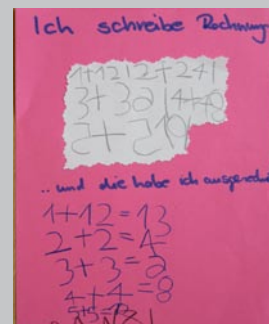 Ich schreibe Rechnung
1+12|2+241
3+321 4+48
2+219
...und die habe ich ausgerechn
1+12=13
2+2=4
3+3=2
4+4=8
5+5=